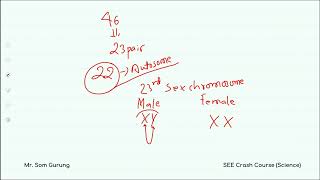 46
||
23 pair
22 → Autosome
23rd Sex chromosome
Male Female
XY XX
Mr. Som Gurung SEE Crash Course (Science)